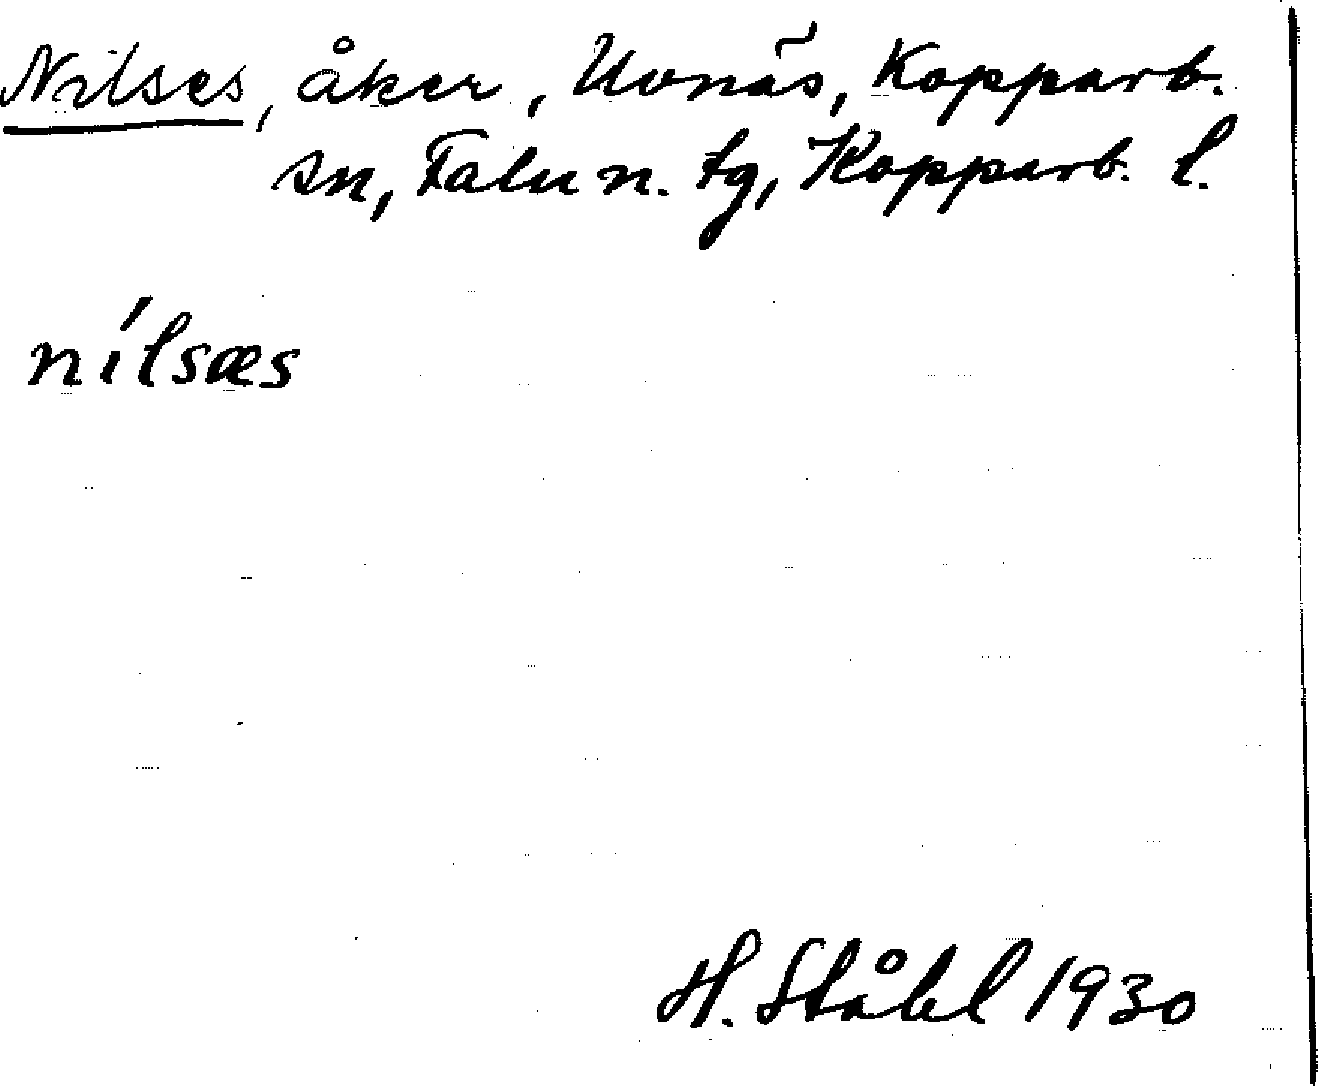 Nilses, åker, Uvnäs, Kopparb.
sn, Falu n. tg, Kopparb. l.
nílsæs
H. Ståhl 1930